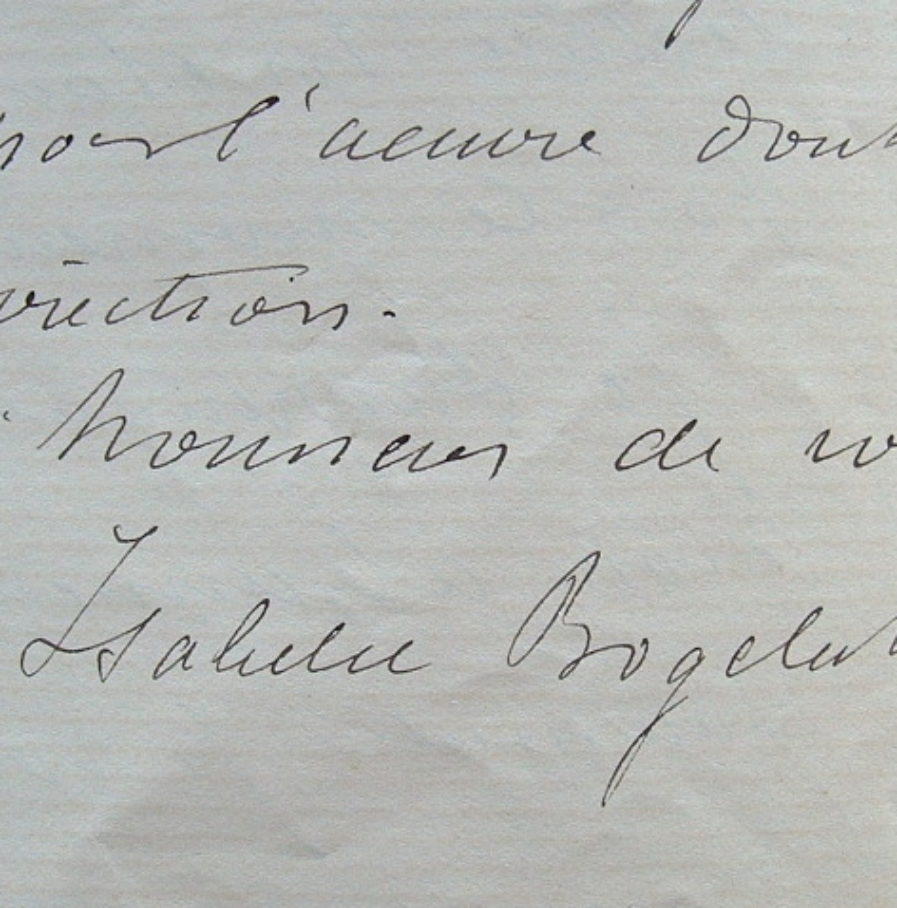 pour l'œuvre dont
irection.
honneur de vo
Isabelle Bogelot